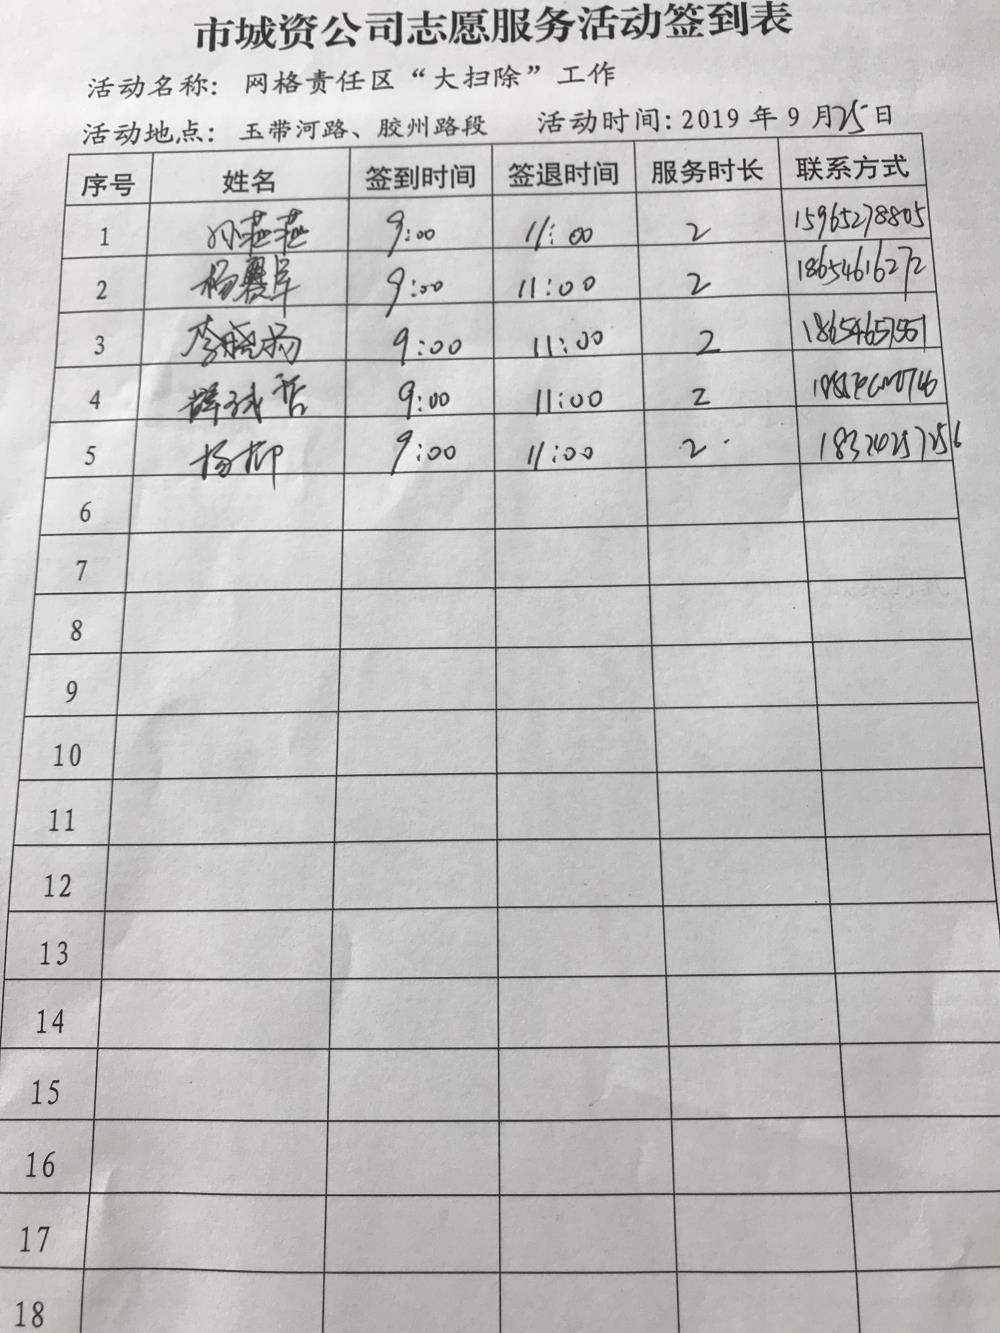 市城资公司志愿服务活动签到表
活动名称：网格责任区“大扫除”工作
活动地点：玉带河路、胶州路段 活动时间：2019 年 9 月25日
序号 姓名 签到时间 签退时间 服务时长 联系方式
1 9:00 11:00 2 15965278805
2 杨 9:00 11:00 2 18654616272
3 李晓 9:00 11:00 2
4 薛 9:00 11:00 2
5 杨柳 9:00 11:00 2
6
7
8
9
10
11
12
13
14
15
16
17
18